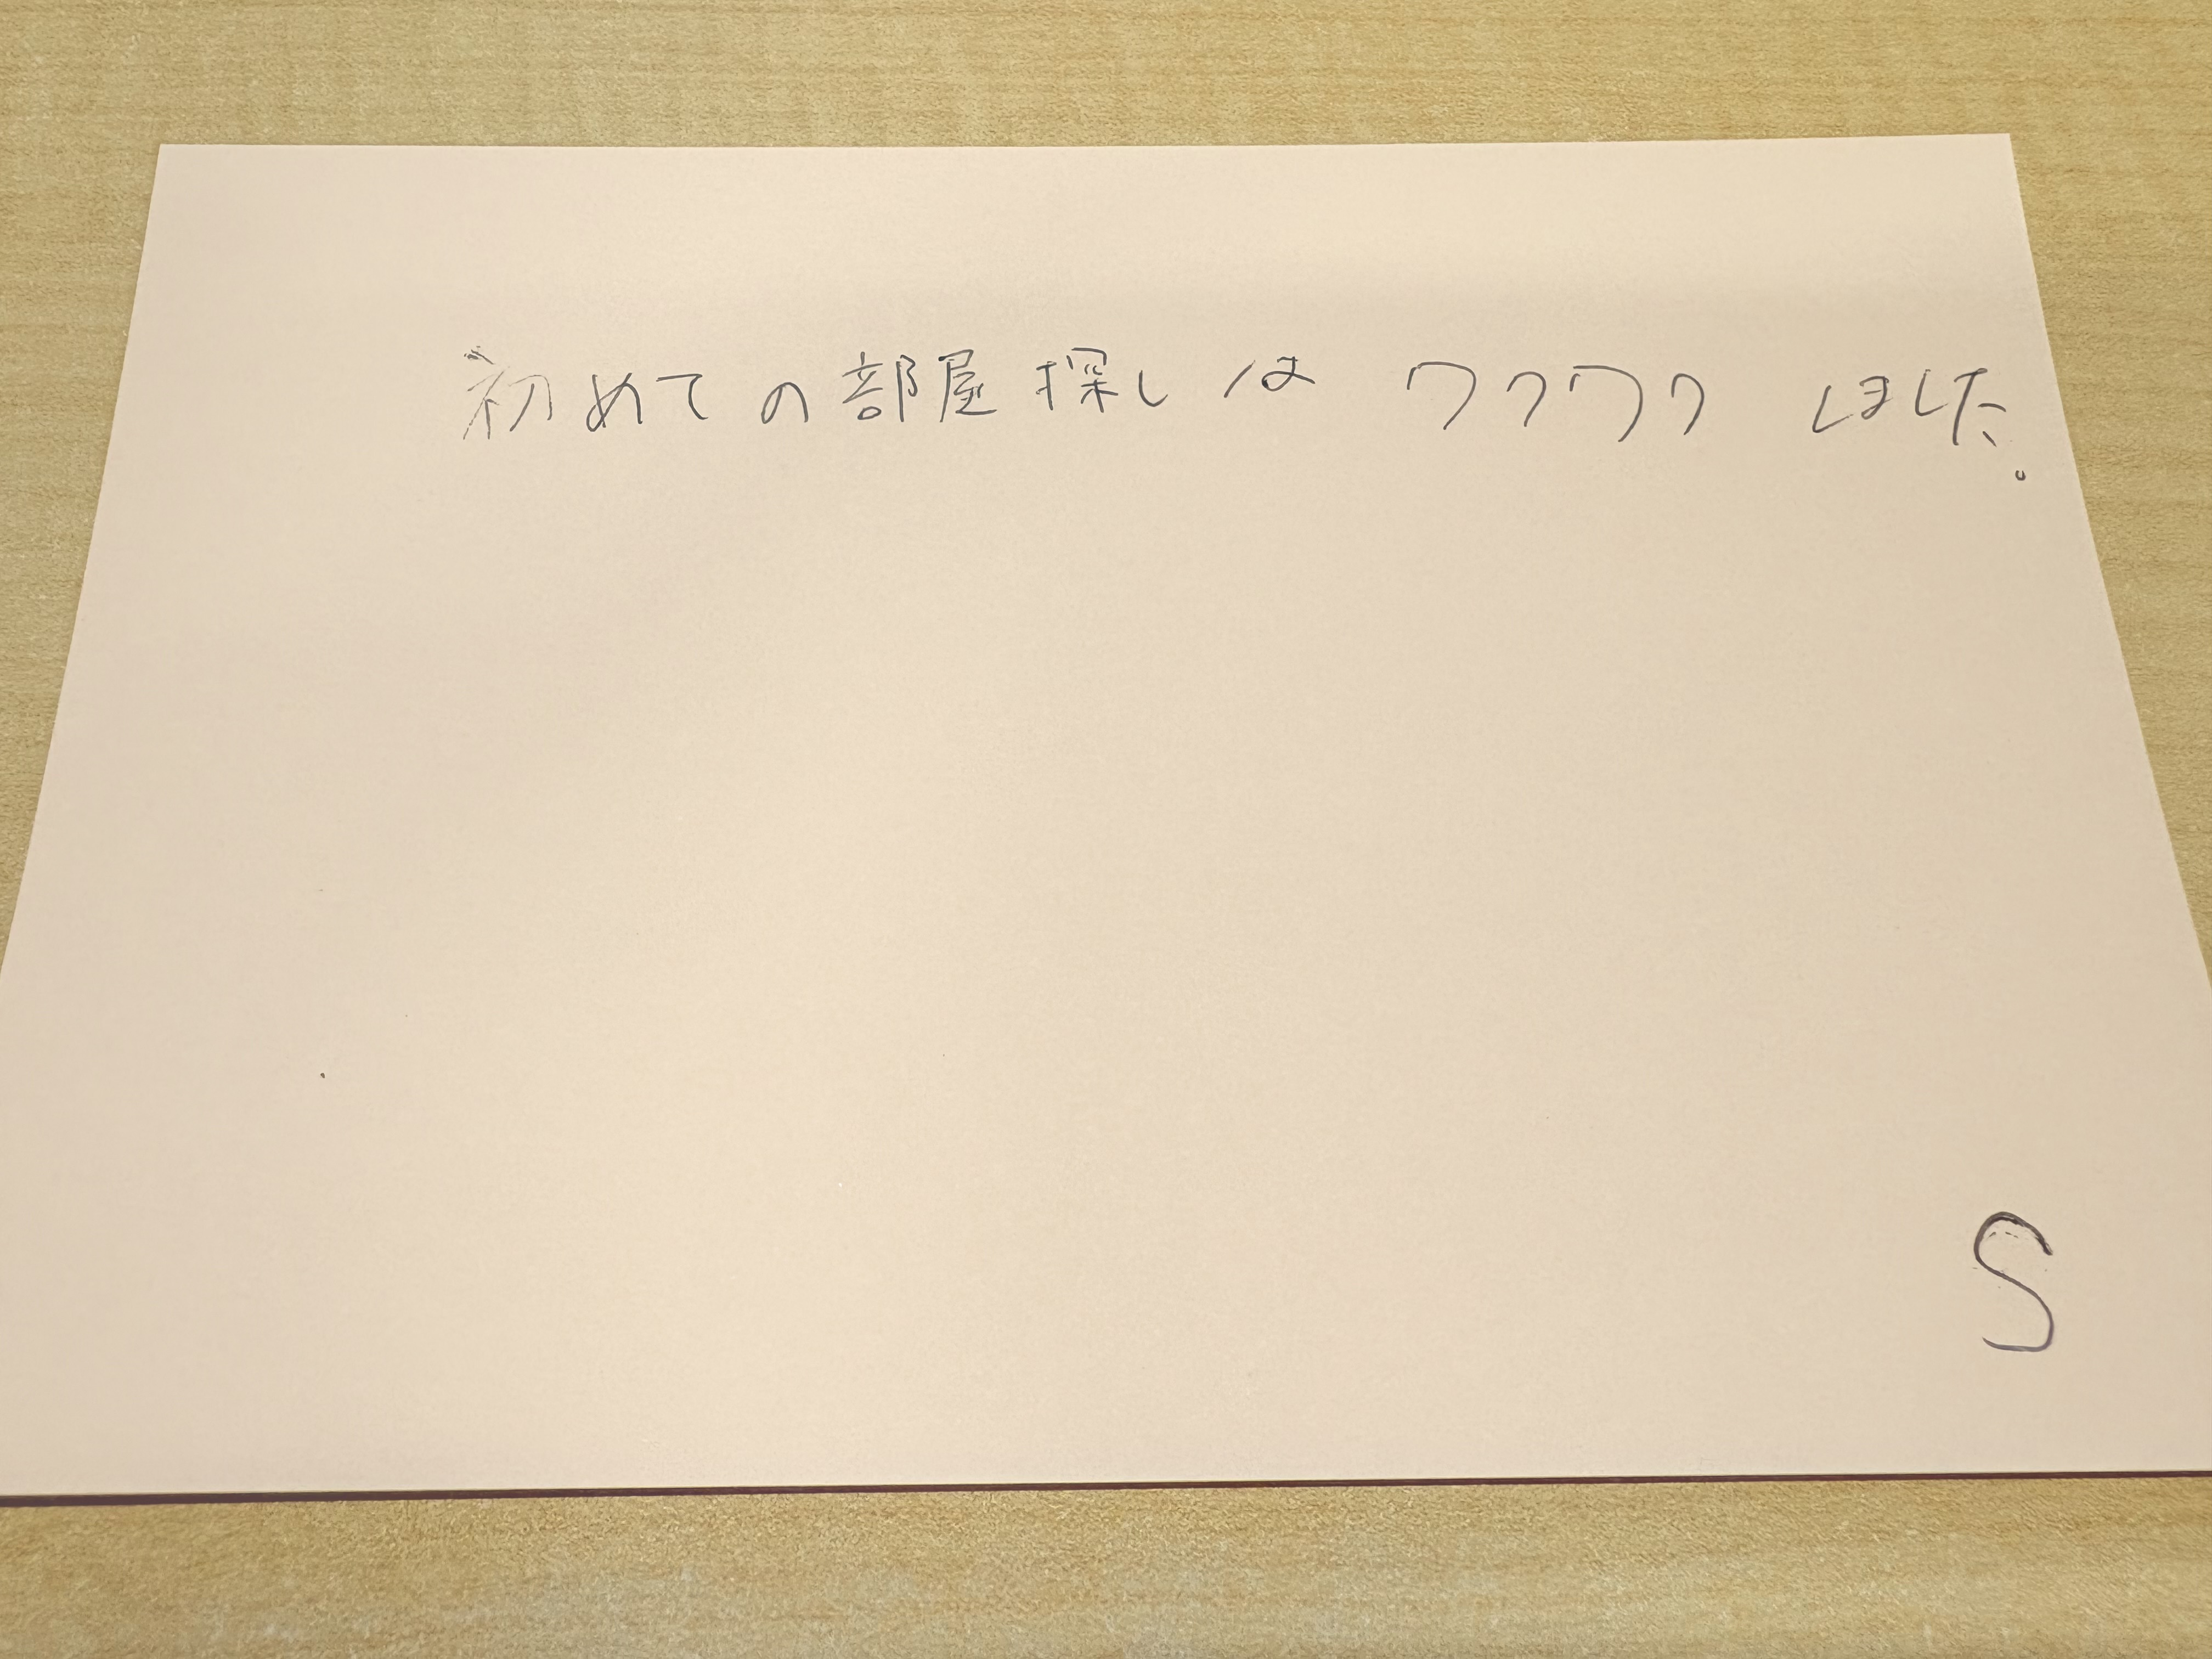 初めての部屋探しは ワクワク しました。
S